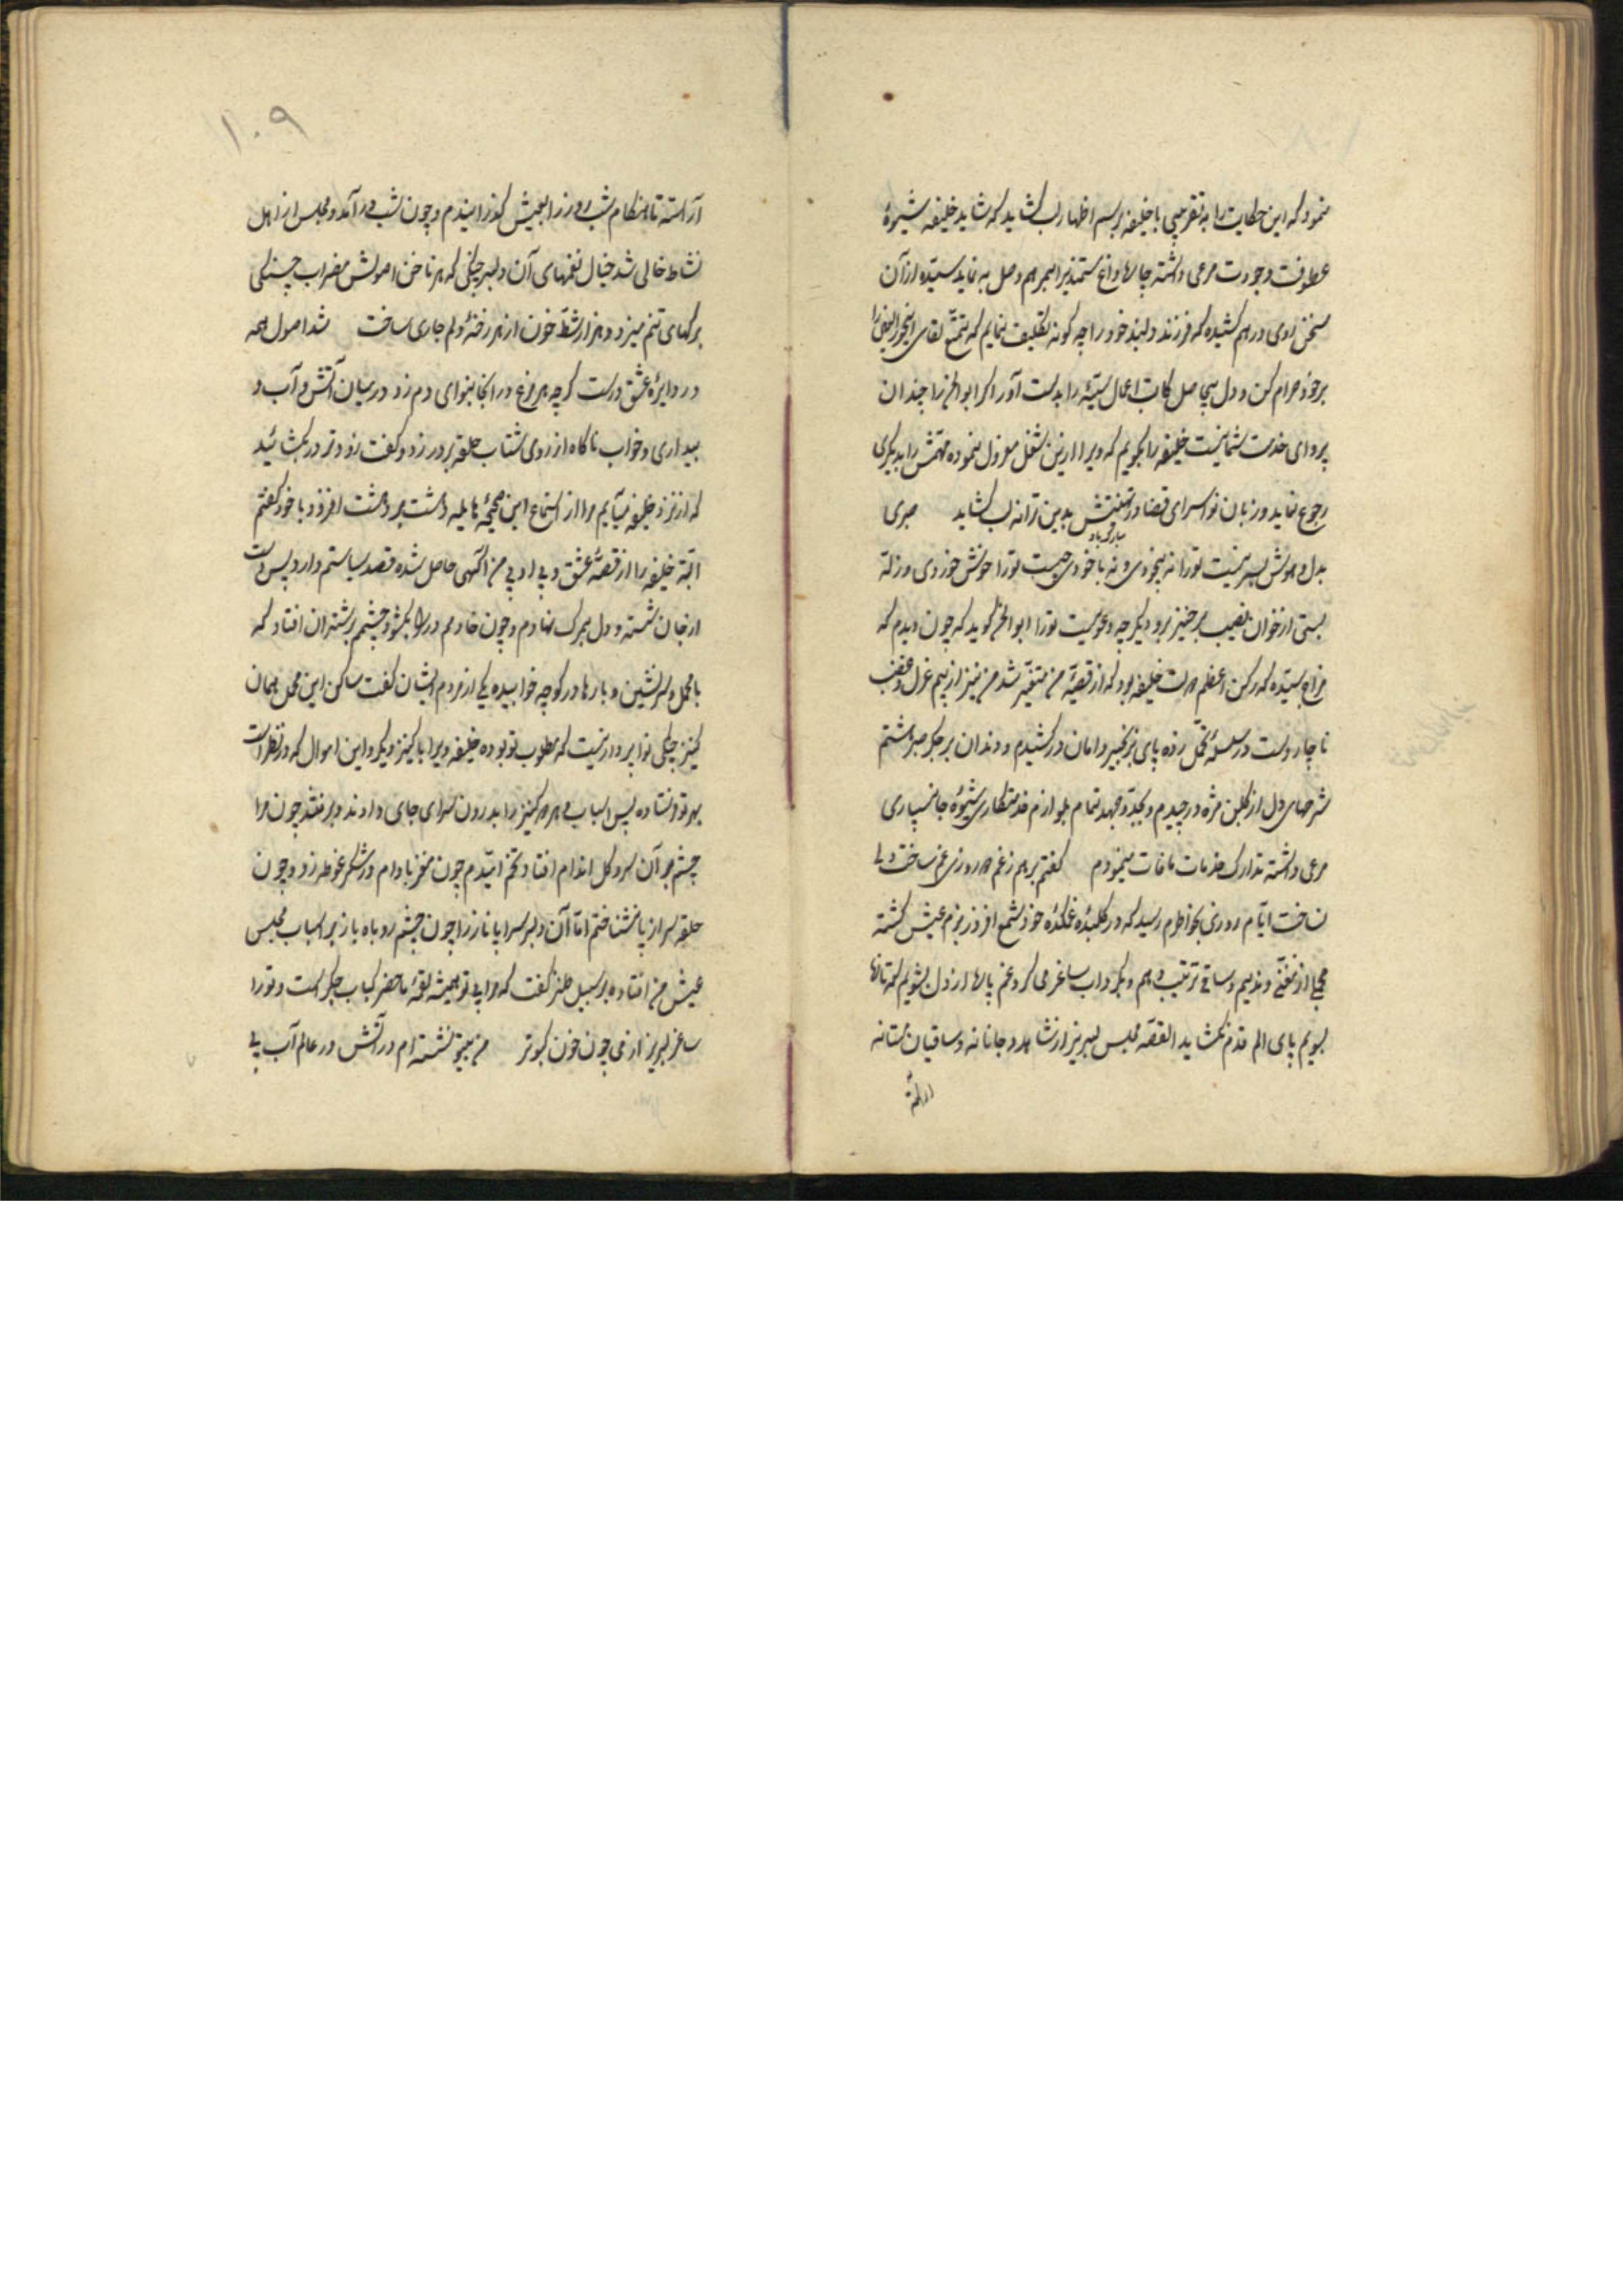 نمود که این حکایت را به تقریبی با خلیفه برسم اظهار لب کشاید که شاید خلیفه شیوهٔ
عطوفت وجودت مرعی داشته چارهٔ داغ مستمندیرا بمرهم وصل به نماید سیّده از آن
سخن روی درهم کشیده که فرزند دلبند خود را چه کونه تکلیف نمایم که تمتع لقای
بر خود حرام کن و دل بی حاصل کتاب اعمال سیّئه را بدست آور اکر ابوالخر را چندان
پروای خدمت شما نیست خلیفه را بکویم که ویرا ازین شغل معزول نموده مهمّش را بدیکری
رجوع نماید و زبان نواسرای قضا در تهنیتش بدین ترانه لب کشاید صبری
بدل و هوش بسر نیست تورا نه بیخودی و نه با خودی چیست تورا خونش خوردی و زله
بستی از خوان نصیب برخیز برو دیکر چه دعویست تورا ابوالخر کوید که چون دیدم که
مزاج سیّده که رکن اعظم دولت خلیفه بود که از قصّهٔ من متغیّر شد من نیز از بیم عزل و غضب
ناچار دست در سلسلهٔ تحمّل زده پای بزنجیر دامان درکشیدم و دندان بر جکر صبر هشتم
شرحهای دل از کلبن مژه درچیدم و بجدّ و جهد تمام بلوازم خدمتکاری شیوهٔ جانسپاری
مرعی داشته تدارک خدمات مافات مینمودم کفتم بریم زغم دو روزی غم ساخت ولی
نساخت ایّام روزی بخواطرم رسید که در کلبهٔ غمکدهٔ خود شمع افروز بزم عیش کشته
مجلی از مغنّی و ندیم و ساقی ترتیب دهم و بکرداب ساغر می کرد غم پارها از دل بشویم که تازها
بسویم پای الم قدم نکشاید القصّه مجلس لبریز از شاهد و جانانه و ساقیان مستانه
آراسته
۱۰۹
آراسته تا هنکام شب روز را بعیش کذرانیدم و چون شب درآمد و مجلس از اهل
نشاط خالی شد خیال نغمهای آن دلبر چنکی که هر ناخن اصولش مضراب چنکی
برکهای تنم میزد و هزار شطّ خون از هر رخنهٔ دلم جاری ساخت شد اصول همه
در دایرهٔ عشق درست کرچه هر مرغ در انجا بنوای دم زد در میان آتش و آب و
بیداری و خواب ناکاه از روی شتاب حلقه بر در زد و کفت زودتر در بکشائید
که از نزد خلیفه میآیم مرا از استماع این صیحهٔ هایله دهشت بر دهشت افزود با خود کفتم
البته خلیفه را از قصّهٔ عشق و بی ادبی من آکهی حاصل شده قصد سیاستم دارد پس دست
از جان شسته و دل بمرک نهادم و چون خادمم در را بکشود چشمم بر شتران افتاد که
با محمل زرنشین و بارها در کوچه خوابیده یکی از مردم ایشان کفت ساکن این محمل همان
کنیز چنکی نواپرداز نیست که مطلوب تو بوده خلیفه ویرا با کنیز دیکر و این اموال که در نظر است
بهر تو فرستاده پس اسباب و هر دو کنیز را بدرون سرای جای دادند و برفتند چون مرا
چشم بر آن سرو کل اندام افتاد نخم امیّدم چون مغز بادام در شکر غوطه زد و چون
حلقه سر از پا نشناختم امّا آن دلبر سراپا ناز را چون چشم روباه باز بر اسباب مجلس
عیش من افتاده بر سبیل طنز کفت که مرا بی تو همیشه لقمهٔ ماحضر کباب جکر است و تورا
ساغر لبریز از می چون خون کبوتر من بیتو نشسته ام در آتش در عالم آب بی